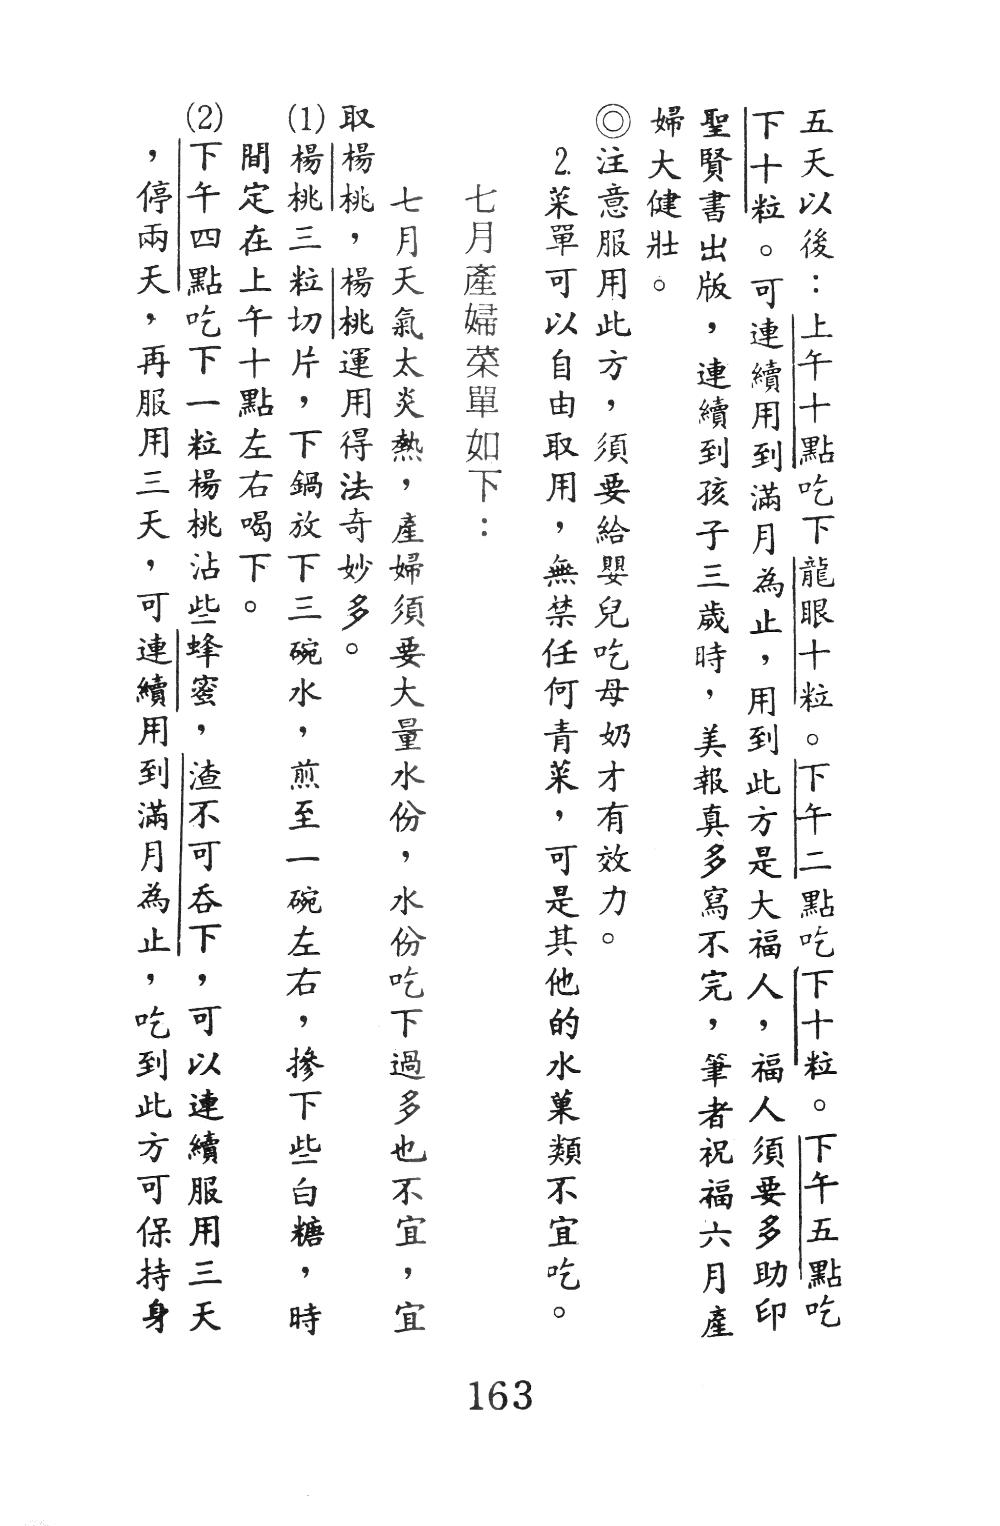 五天以後：上午十點吃下龍眼十粒。下午二點吃下十粒。下午五點吃
下十粒。可連續用到滿月為止，用到此方是大福人，福人須要多助印
聖賢書出版，連續到孩子三歲時，美報真多寫不完，筆者祝福六月產
婦大健壯。
◎注意服用此方，須要給嬰兒吃母奶才有效力。
2.菜單可以自由取用，無禁任何青菜，可是其他的水菓類不宜吃。
七月產婦菜單如下：
七月天氣太炎熱，產婦須要大量水份，水份吃下過多也不宜，宜
取楊桃，楊桃運用得法奇妙多。
(1)楊桃三粒切片，下鍋放下三碗水，煎至一碗左右，摻下些白糖，時
間定在上午十點左右喝下。
(2)下午四點吃下一粒楊桃沾些蜂蜜，渣不可吞下，可以連續服用三天
，停兩天，再服用三天，可連續用到滿月為止，吃到此方可保持身
163